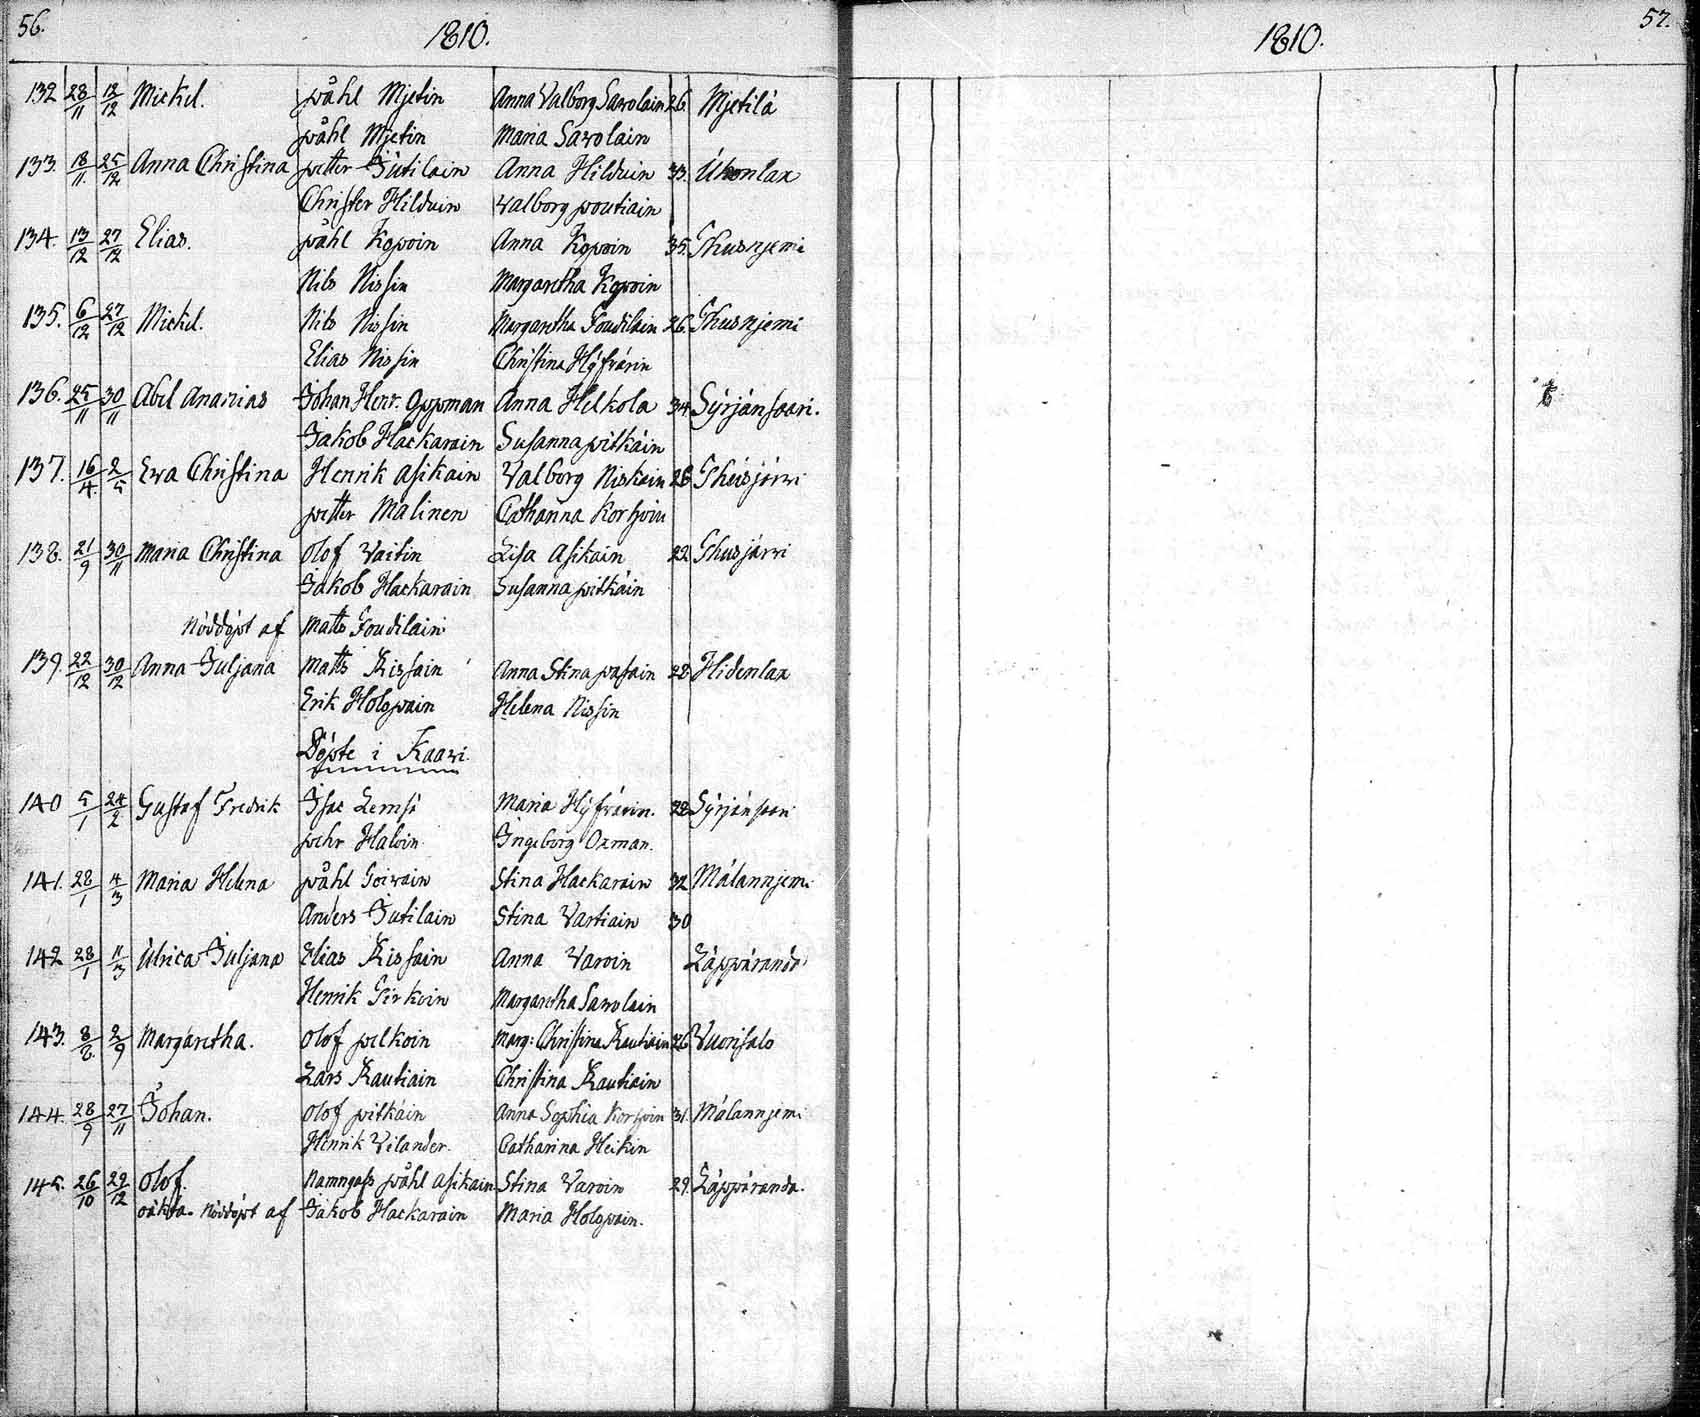 56.
1810.
132 28/11 12/12 Mickel. påhl Mjetin Anna Valborg Sawolain 26 Mjetilä
påhl Mjetin Maria Sawolain
133. 18/11. 25/12 Anna Christina petter Jutilain Anna Hilduin 33. Ukonlax
Christer Hilduin Valborg poutiain
134. 13/12 27/12 Elias. påhl Kopoin Anna Kopoin 35. Ghusnjemi
Nils Nissin Margaretha Kopoin
135. 6/12 27/12 Mickel. Nils Nissin Margaretha Goudilain 26. Ghusnjemi
Elias Nissin Christina Hyfvärin
136. 25/11 30/11 Abel Ananias Johan Henr. Oppman Anna Helkola 34 Syrjänsaari.
Jakob Hackarain Susanna pitkäin
137. 16/4. 2/5 Ewa Christina Henrik Asikain Valborg Niskain 28 Ghusjärwi
petter Malinen Cathanna Korhoin
138. 21/9 30/11 Maria Christina Olof Vaitin Lisa Asikain 22 Ghusjärwi
Jakob Hackarain Susanna pitkäin
Nöddöpt af Matts Goudilain
139. 22/12 30/12 Anna Juljana Matts Kissain Anna Stina pasain 28 Hidenlax
Erik Holopain Helena Nissin
Döpte i Kaavi.
140 5/1 24/2 Gustaf Fredrik Isac Lemsä Maria Hyfvärin. 22 Syrjänsaari
pehr Haloin. Ingeborg Oxman.
141. 28/1 4/3 Maria Helena påhl Goivain Stina Hackarain 32 Mälannjemi
Anders Jutilain Stina Vartiain 30
142 28/1 11/3 Ulrica Juljana Elias Kissain Anna Varoin Läppäranda
Henrik Girkoin Margaretha Sawolain
143. 8/8. 2/9 Margaretha. Olof pelkoin Marg: Christina Rautiain 26 Vuorisalo
Lars Rautiain Christina Rautiain
144. 28/9 27/11 Johan. Olof pitkäin Anna Sophia Korhoin 31. Mälannjemi
Henrik Vilander. Catharina Heikin
145. 26/10 29/12 Olof. Namngafs påhl Asikain Stina Varoin 29. Läppäranda.
oäkta. Nöddöpt af Jakob Hackarain Maria Holopain.
1810.
57.